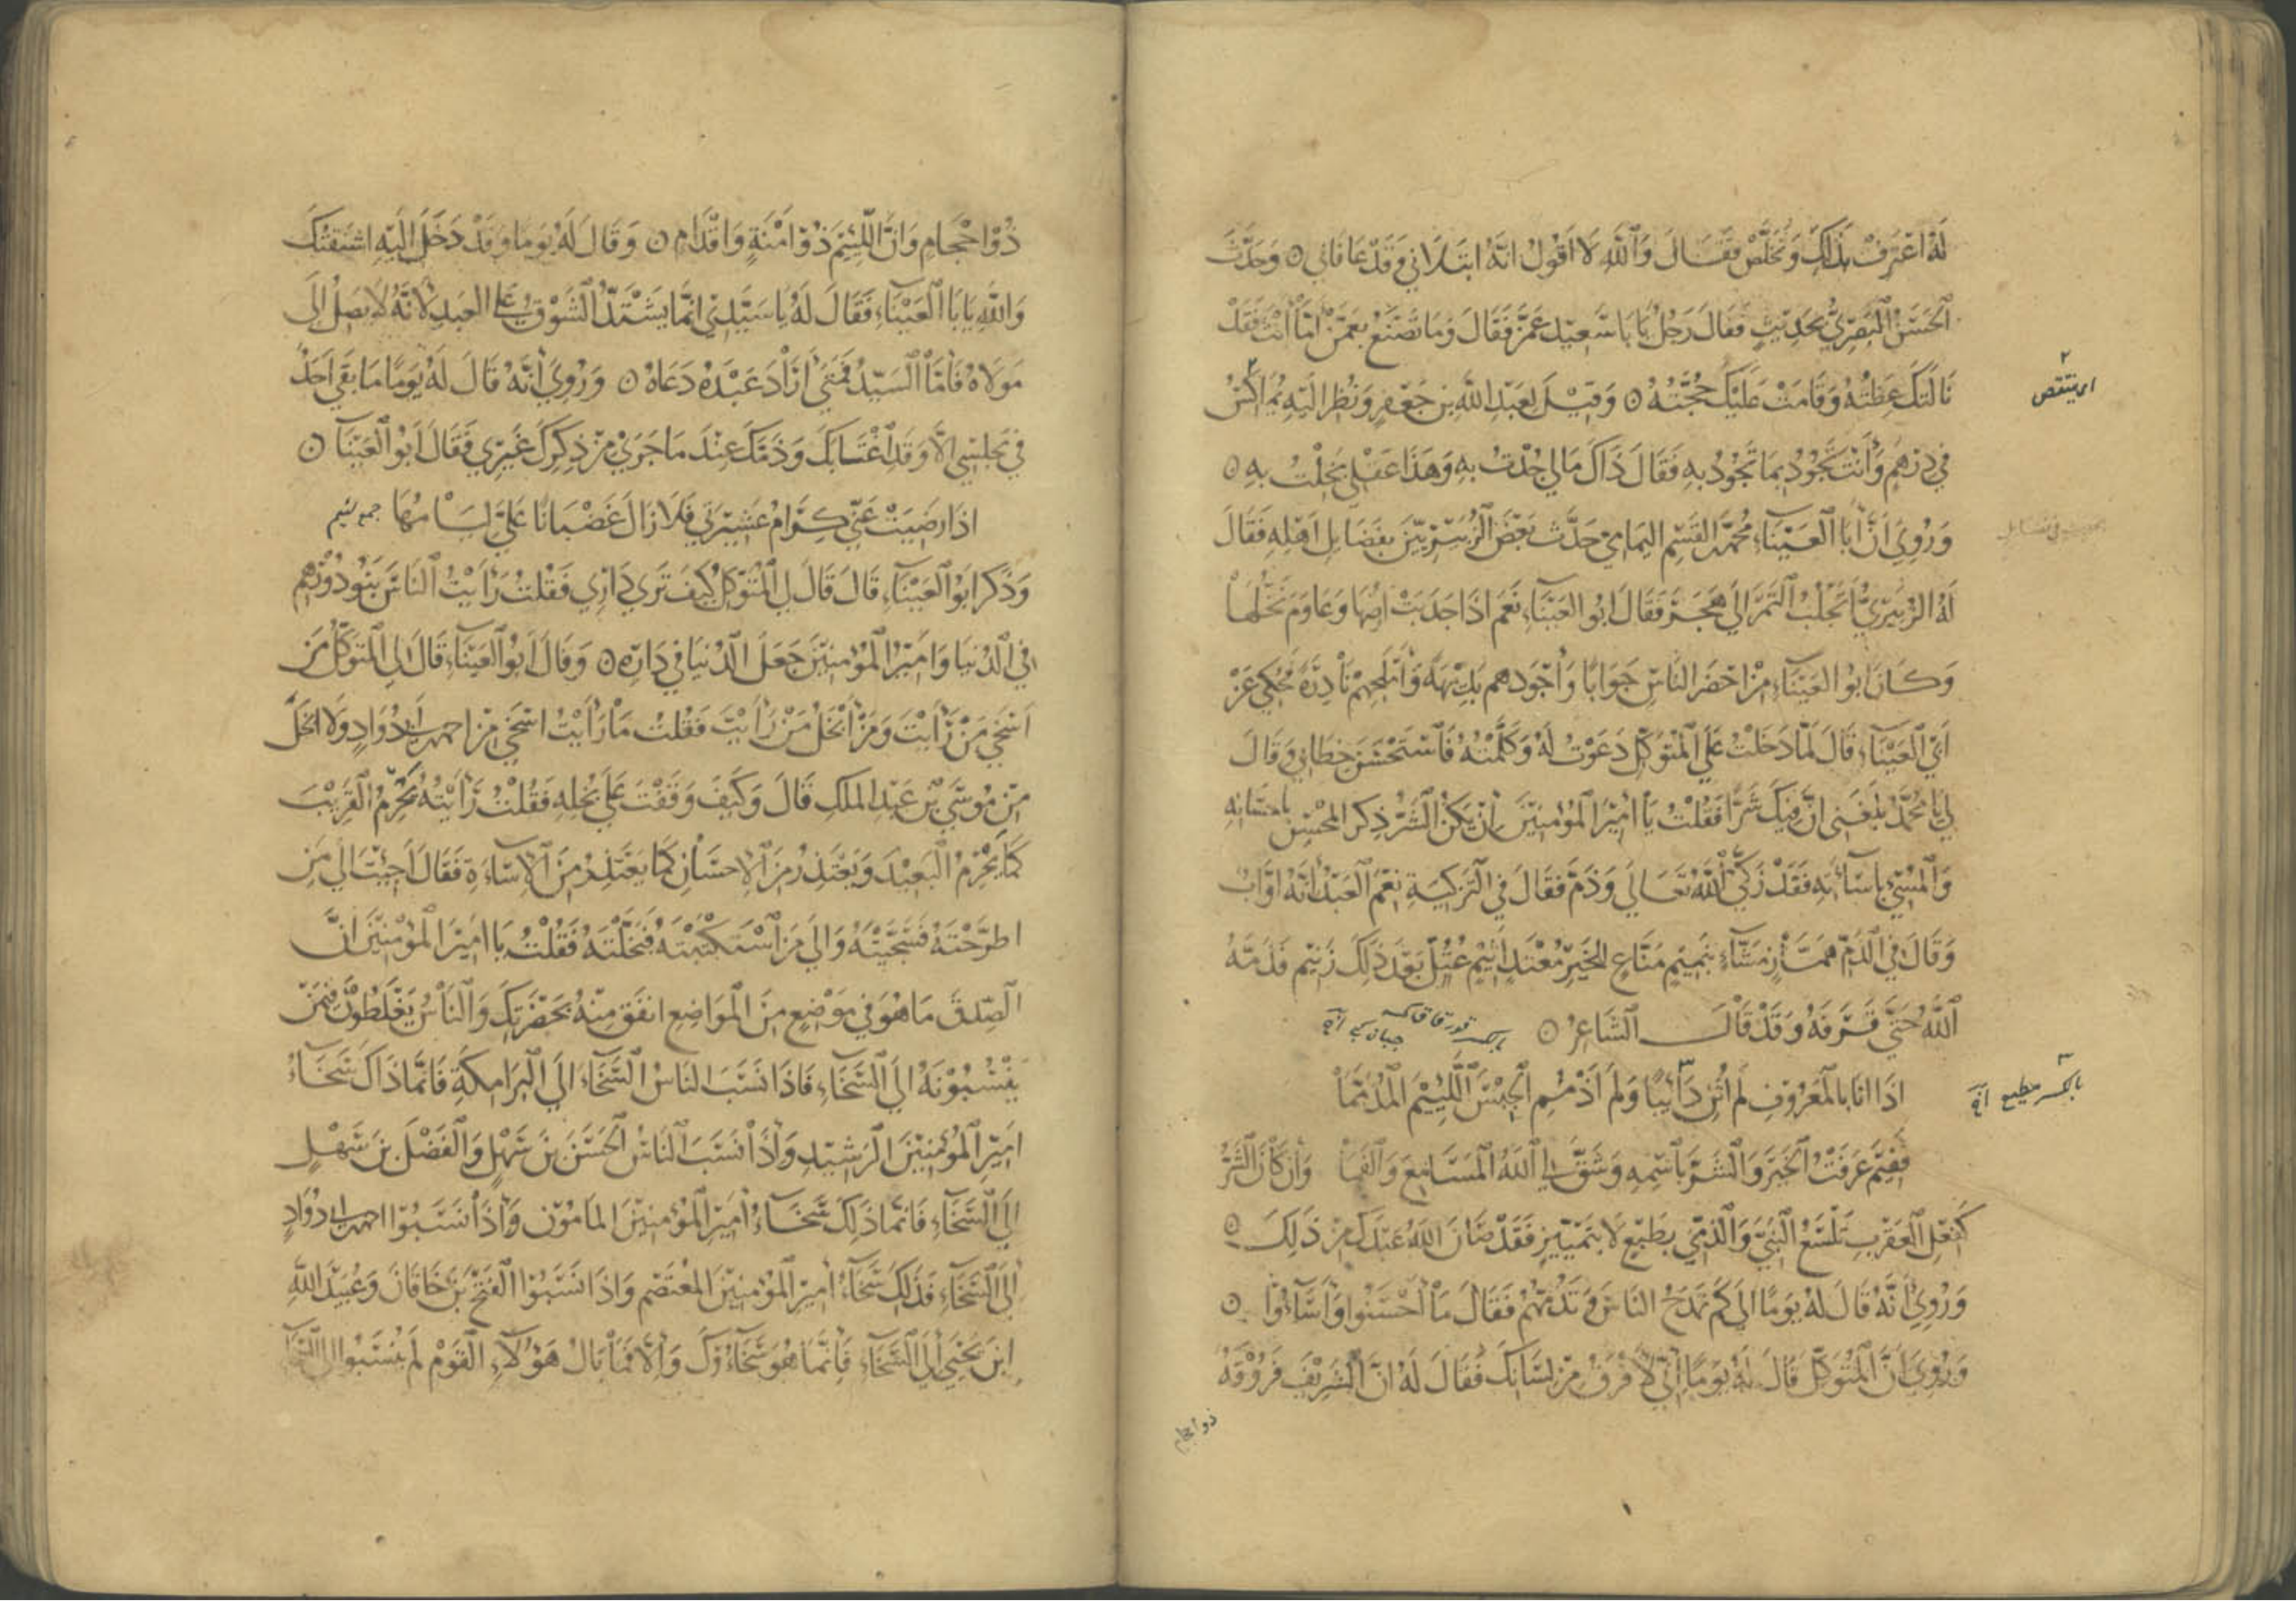 لَهُ اعْتَرِفْ بِذَلِكَ وَتَخَلَّصْ فَقَالَ وَاللّهِ لَا اَقُولُ اِنَّهُ ابْتَلَانِي وَقَدْ عَافَانِي ۝ وَحَدَّثَ
الْحَسَنُ الْبَصْرِيُّ بِحَدِيثٍ فَقَالَ رَجُلٌ يَا بَا سَعِيْدٍ عَمَّنْ فَقَالَ وَمَا تَصْنَعُ بِعَمَّنْ اَمَّا اَنْتَ فَقَدْ
نَالَتْكَ عِظَتُهُ وَقَامَتْ عَلَيْكَ حُجَّتُهُ ۝ وَقِيْلَ لِعَبْدِ اللّهِ بْنِ جَعْفَرٍ وَنُظِرَ اِلَيْهِ يُمَاكِسُ
اى ينقص
فِي دِرْهَمٍ وَأَنْتَ تَجُوْدُ بِمَا تَجُوْدُ بِهِ فَقَالَ ذَاكَ مَالِي جُدْتُ بِهِ وَهَذَا عَقْلِي بَخِلْتُ بِهِ ۝
وَرُوِيَ اَنَّ أَبَا الْعَيْنَاءِ مُحَمَّدَ بْنَ الْقَسِمِ الْيَمَامِيَّ حَدَّثَ بَعْضَ الزُّبَيْرِيِّيْنَ بِفَضَائِلِ اَهْلِهِ فَقَالَ
لَهُ الزُّبَيْرِيُّ أَتَجْلُبُ التَّمْرَ اِلَى هَجَرَ فَقَالَ اَبُو الْعَيْنَاءِ نَعَمْ اِذَا جَدَبَتْ اَرْضُهَا وَعَاوَمَ نَخْلُهَا
وَكَانَ اَبُو الْعَيْنَاءِ مِنْ اَحْضَرِ النَّاسِ جَوَابًا وَأَجْوَدِهِمْ بَدِيْهَةً وَأَمْلَحِهِمْ نَادِرَةً حُكِيَ عَنْ
اَبِي الْعَيْنَاءِ قَالَ لَمَّا دَخَلْتُ عَلَى الْمُتَوَكِّلِ دَعَوْتُ لَهُ وَكَلَّمْتُهُ فَاسْتَحْسَنَ خِطَابِي وَقَالَ
لِي يَا مُحَمَّدُ بَلَغَنِي اَنَّ فِيْكَ شَرًّا فَقُلْتُ يَا أَمِيْرَ الْمُؤْمِنِيْنَ اِنْ يَكُنِ الشَّرُّ ذِكْرَ الْمُحْسِنِ بِاحْسَانِهِ
وَالْمُسِيْءِ بِاِسَاءَتِهِ فَقَدْ زَكَّى اللّهُ تَعَالَى وَذَمَّ فَقَالَ فِي التَّزْكِيَةِ نِعْمَ الْعَبْدُ اِنَّهُ اَوَّابٌ
وَقَالَ فِي الذَّمِّ هَمَّازٍ مَشَّاءٍ بِنَمِيْمٍ مَنَّاعٍ لِلْخَيْرِ مُعْتَدٍ أَثِيْمٍ عُتُلٍّ بَعْدَ ذَلِكَ زَنِيْمٍ فَذَمَّهُ
اللّهُ حَتَّى قَرَفَهُ وَقَدْ قَالَ الشَّاعِرُ ۝
اِذَا اَنَا بِالْمَعْرُوفِ لَمْ اُثْنِ دَائِبًا وَلَمْ اَذْمُمِ الْجِبْسَ اللَّئِيْمَ الْمُذَمَّمَا
فَفِيْمَ عَرَفْتُ الْخَيْرَ وَالشَّرَّ بِاسْمِهِ وَشَقَّ لِي اللّهُ الْمَسَامِعَ وَالْفَمَا وَاِنْ كَانَ الشَّرُّ
كَفِعْلِ الْعَقْرَبِ تَلْسَعُ النَّبِيَّ وَالذِّمِّيَّ بِطَبْعٍ لَا بِتَمْيِيْزٍ فَقَدْ صَانَ اللّهُ عَبْدَكَ مِنْ ذَلِكَ ۝
وَرُوِيَ اَنَّهُ قَالَ لَهُ يَوْمًا اِلَى كَمْ تَمْدَحُ النَّاسَ وَتَذُمُّهُمْ فَقَالَ مَا أَحْسَنُوا وَأَسَاءُوْا ۝
وَرُوِيَ اَنَّ الْمُتَوَكِّلَ قَالَ لَهُ يَوْمًا اِنِّي لَأَفْرَقُ مِنْ لِسَانِكَ فَقَالَ لَهُ اِنَّ الشَّرِيْفَ فَرُوْقَةٌ
ذو احجام
ذُوْ اِحْجَامٍ وَاِنَّ اللَّئِيْمَ ذُوْ اَمَنَةٍ وَاِقْدَامٍ ۝ وَقَالَ لَهُ يَوْمًا وَقَدْ دَخَلَ اِلَيْهِ اشْتَقْتُكَ
وَاللّهِ يَا بَا الْعَيْنَاءِ فَقَالَ لَهُ يَا سَيِّدِيْ اِنَّمَا يَشْتَدُّ الشَّوْقُ عَلَى الْعَبْدِ لِاَنَّهُ لَا يَصِلُ اِلَى
مَوْلَاهُ فَأَمَّا السَّيِّدُ فَمَتَى أَرَادَ عَبْدَهُ دَعَاهُ ۝ وَرُوِيَ أَنَّهُ قَالَ لَهُ يَوْمًا مَا بَقِيَ اَحَدٌ
فِي مَجْلِسِي اِلَّا وَقَدِ اغْتَابَكَ وَذَمَّكَ عِنْدَ مَا جَرَى مِنْ ذِكْرِكَ غَيْرِي فَقَالَ اَبُو الْعَيْنَاءِ ۝
اِذَا رَضِيَتْ عَنِّي كِرَامُ عَشِيْرَتِي فَلَا زَالَ غَضْبَانًا عَلَيَّ لِئَامُهَا جمع لئيم
وَذَكَرَ اَبُو الْعَيْنَاءِ قَالَ قَالَ لِي الْمُتَوَكِّلُ كَيْفَ تَرَى دَارِي فَقُلْتُ رَأَيْتُ النَّاسَ بَنَوْا دُوْرَهُمْ
فِي الدُّنْيَا وَاَمِيْرُ الْمُؤْمِنِيْنَ جَعَلَ الدُّنْيَا فِي دَارِهِ ۝ وَقَالَ اَبُو الْعَيْنَاءِ قَالَ لِي الْمُتَوَكِّلُ مَنْ
اَسْخَى مَنْ رَأَيْتَ وَمَنْ أَبْخَلُ مَنْ رَأَيْتَ فَقُلْتُ مَا رَأَيْتُ اَسْخَى مِنْ احمد بن ابى دُوَادٍ وَلَا اَبْخَلَ
مِنْ مُوْسَى بْنِ عَبْدِ الْمَلِكِ قَالَ وَكَيْفَ وَقَفْتَ عَلَى بُخْلِهِ فَقُلْتُ رَأَيْتُهُ يَحْرِمُ الْقَرِيْبَ
كَمَا يَحْرِمُ الْبَعِيْدَ وَيَعْتَذِرُ مِنَ الْاِحْسَانِ كَمَا يَعْتَذِرُ مِنَ الْاِسَاءَةِ فَقَالَ أَجِئْتَ اِلَى مَنِ
اطَّرَحْتُهُ فَسَخَّيْتَهُ وَاِلَى مَنِ اسْتَكْتَبْتُهُ فَبَخَّلْتَهُ فَقُلْتُ يَا اَمِيْرَ الْمُؤْمِنِيْنَ اِنَّ
الصِّدْقَ مَا هُوَ فِي مَوْضِعٍ مِنَ الْمَوَاضِعِ اَنْفَقَ مِنْهُ بِحَضْرَتِكَ وَالنَّاسُ يَغْلَطُونَ فِيْمَنْ
يَنْسِبُوْنَهُ اِلَى السَّخَاءِ فَاِذَا نَسَبَ النَّاسُ السَّخَاءَ اِلَى الْبَرَامِكَةِ فَاِنَّمَا ذَاكَ سَخَاءُ
اَمِيْرِ الْمُؤْمِنِيْنَ الرَّشِيْدِ وَاِذَا نَسَبَ النَّاسُ الْحَسَنَ بْنَ سَهْلٍ وَالْفَضْلَ بْنَ سَهْلٍ
اِلَى السَّخَاءِ فَاِنَّمَا ذَلِكَ سَخَاءُ أَمِيْرِ الْمُؤْمِنِيْنَ الْمَأمُوْنِ وَاِذَا نَسَبُوْا احمد بن ابى دُوَادٍ
اِلَى السَّخَاءِ فَذَلِكَ سَخَاءُ أَمِيْرِ الْمُؤْمِنِيْنَ الْمُعْتَصِمِ وَاِذَا نَسَبُوْا الْفَتْحَ بْنَ خَاقَانَ وَعُبَيْدَ اللّهِ
ابْنَ يَحْيَى اِلَى السَّخَاءِ فَاِنَّمَا هُوَ سَخَاؤُكَ وَاِلَّا فَمَا بَالُ هَؤُلَاءِ الْقَوْمِ لَمْ يُنْسَبُوا اِلَى السَّخَاءِ